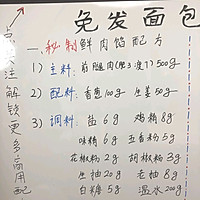 免发面包
点关注解锁更多商用配
一、秘制鲜肉馅配方
1) 主料: 前腿肉(肥3瘦7) 500g
2) 配料: 香葱100g 生姜50g
3) 调料: 盐6g 鸡精8g
味精6g 五香粉5g
花椒粉2g 胡椒粉3g
生抽20g 老抽8g
白糖5g 温水200g